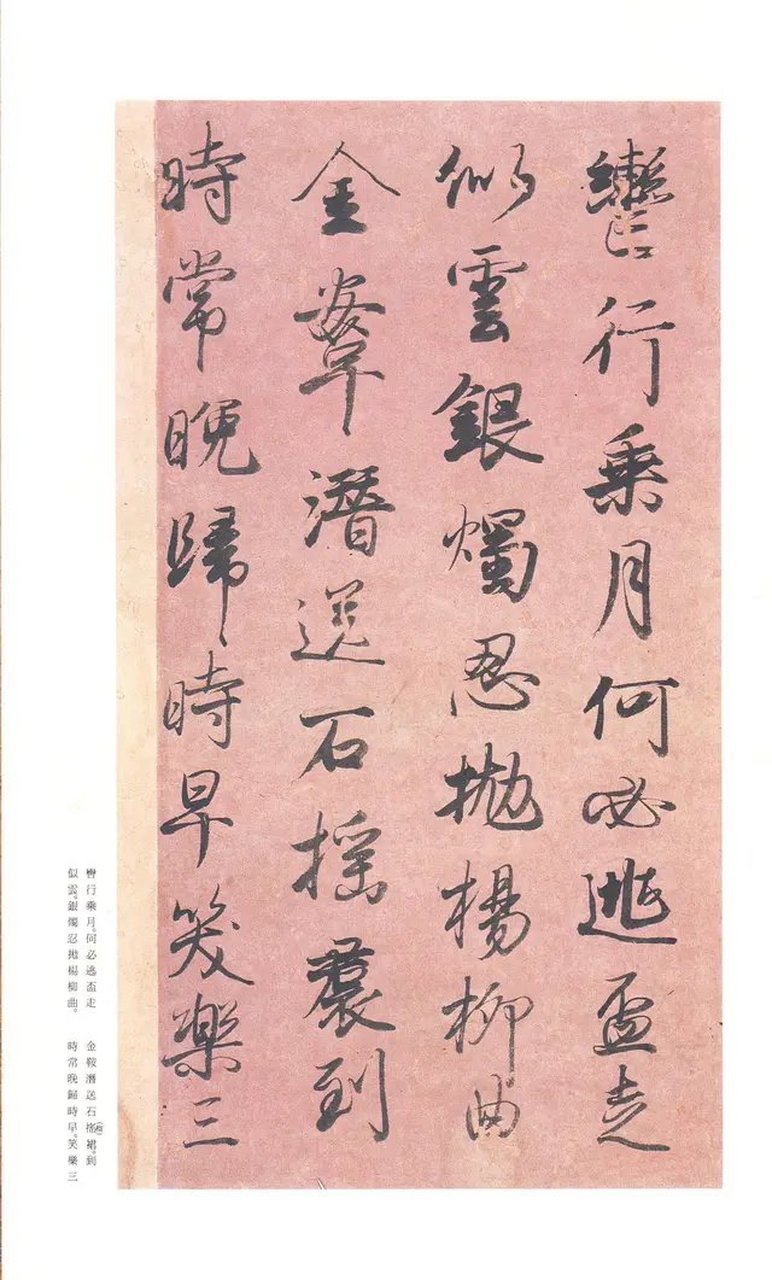 轡行乘月何必逃盃走
似雲銀燭忍拋楊柳曲
金鞍潛送石榣裠到
時常晚歸時早笑樂三
轡行乘月。何必逃盃走
似雲。銀燭忍拋楊柳曲。
金鞍潛送石榣(榴)裙。到
時常晚歸時早。笑樂三